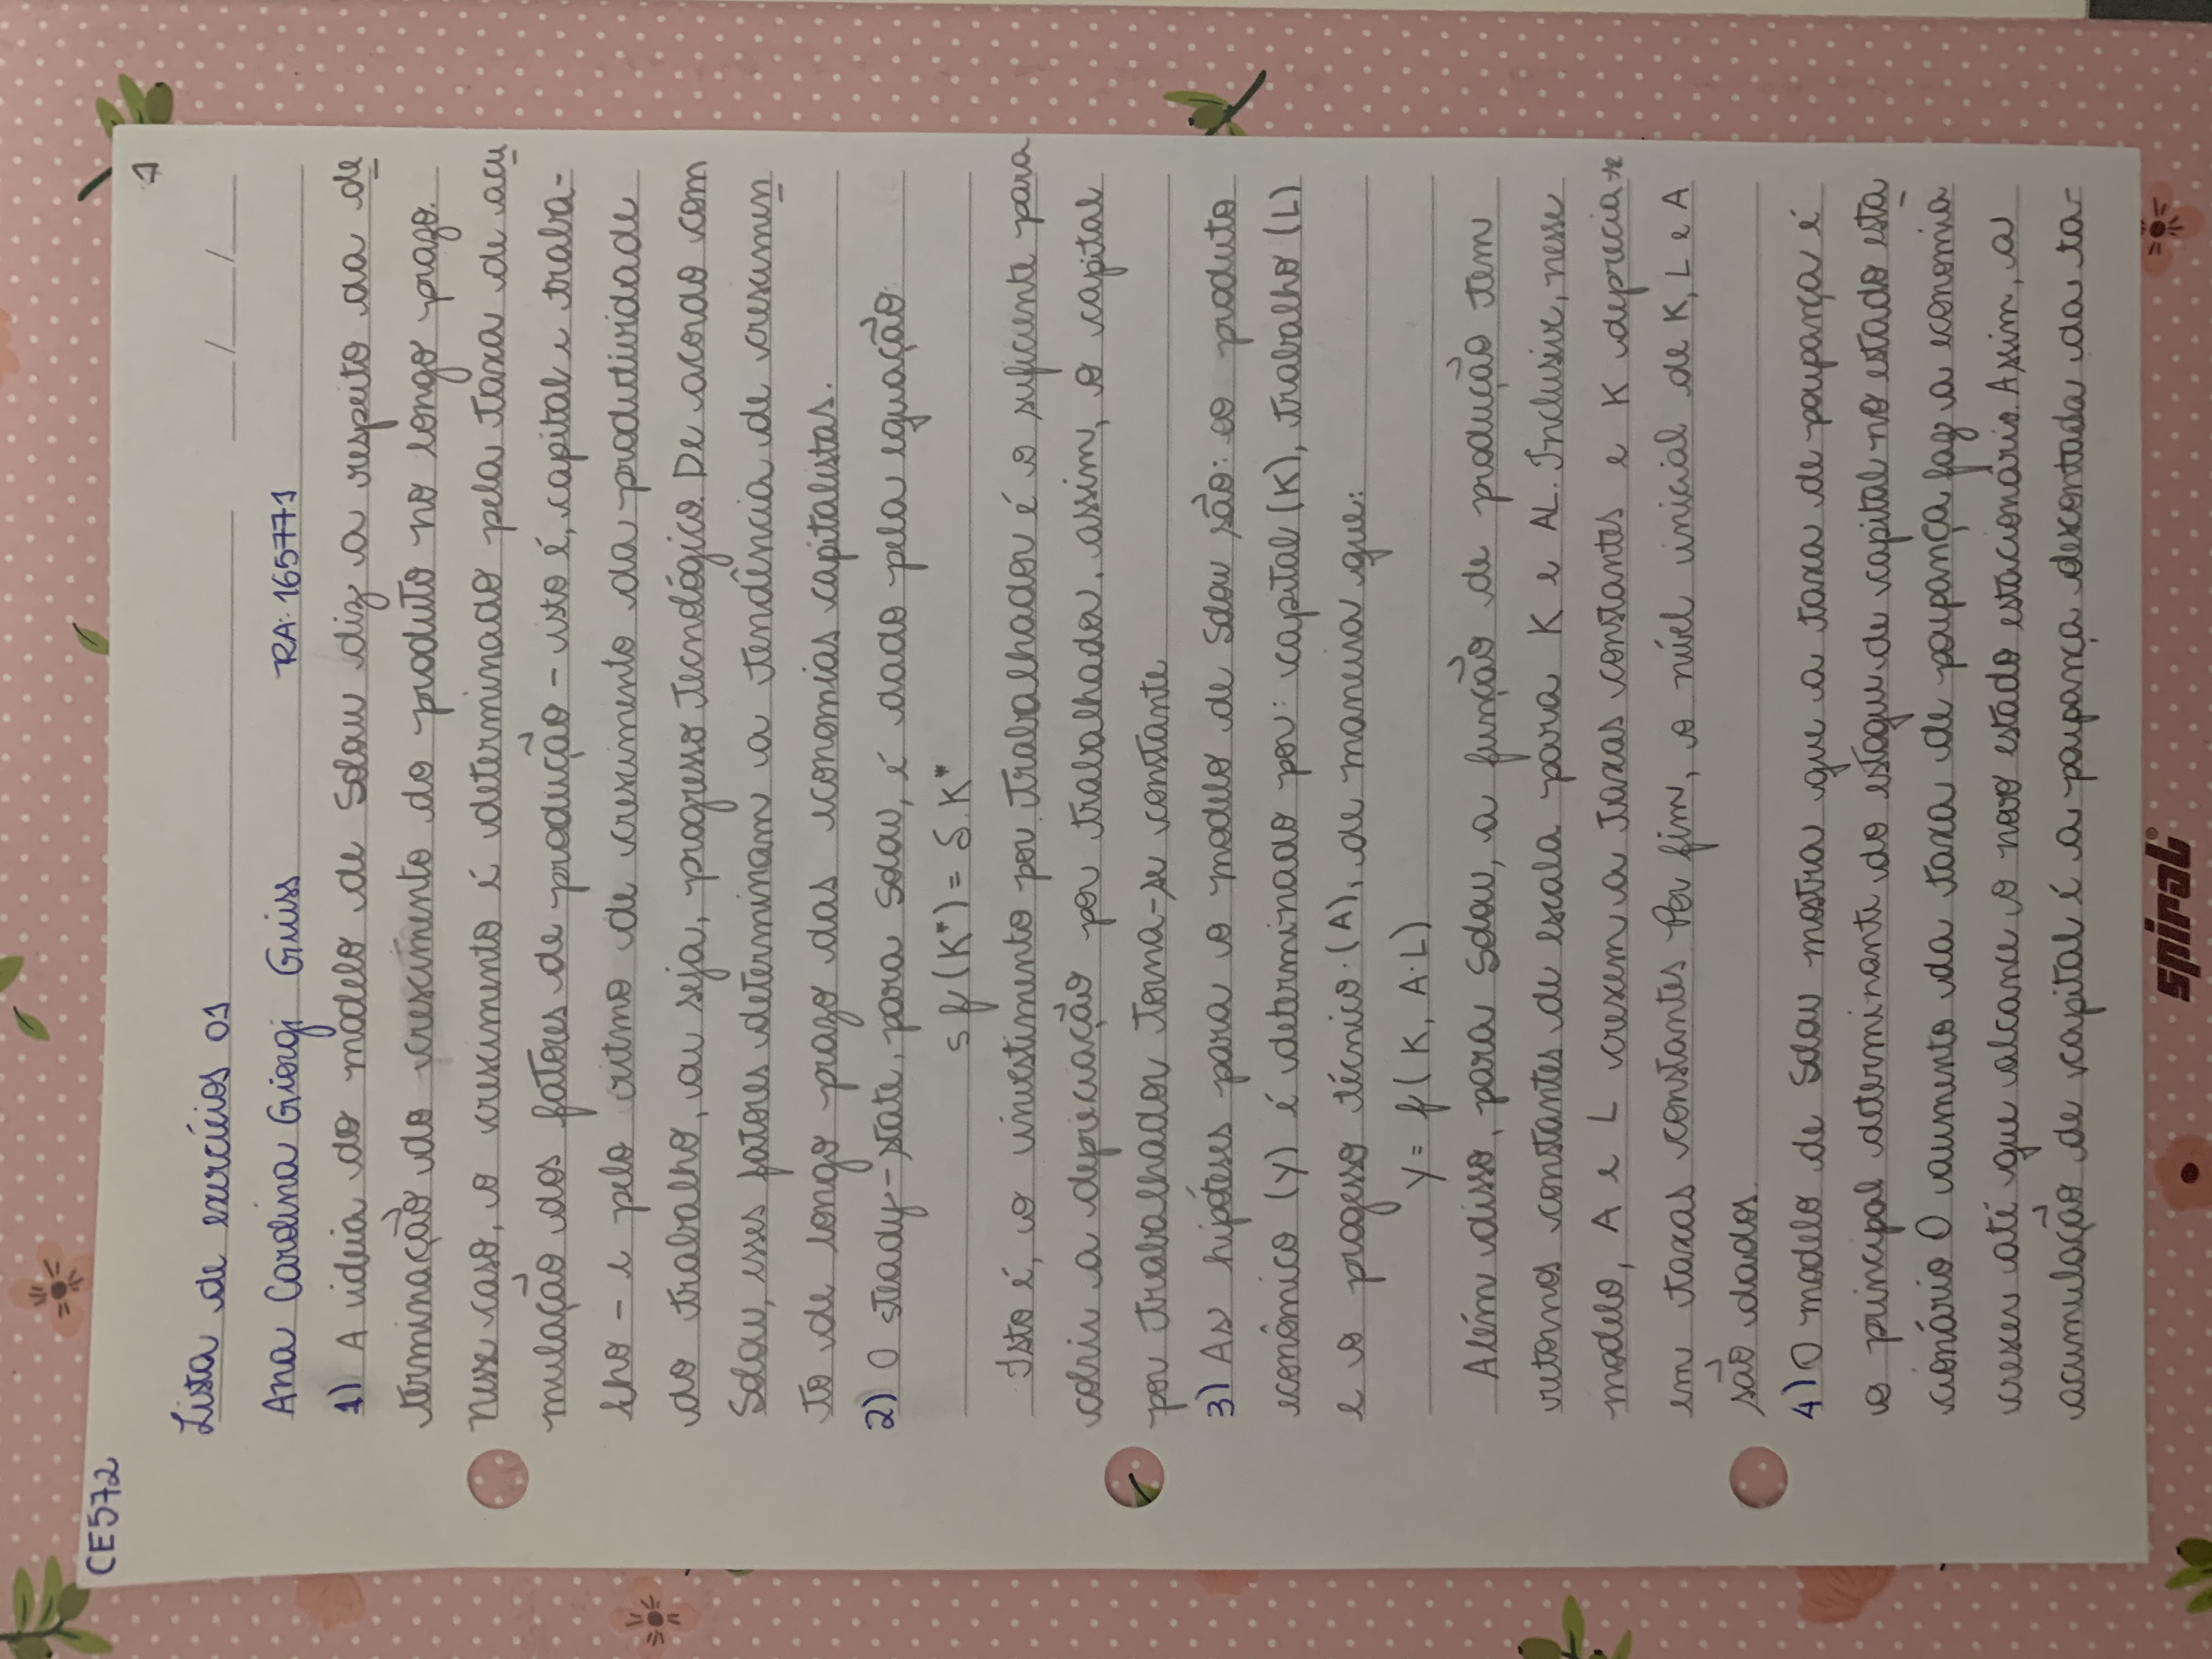 CE572
1
Lista de exercícios 01
___/___/___
Ana Carolina Giorgi Guiss RA: 165771
1) A ideia do modelo de Solow diz a respeito da de
terminação do crescimento do produto no longo prazo.
Nesse caso, o crescimento é determinado pela taxa de acu
mulação dos fatores de produção - isto é, capital e traba-
lho - e pelo ritmo de crescimento da produtividade
do trabalho, ou seja, progresso tecnológico. De acordo com
Solow, esses fatores determinam a tendência de crescimen
to de longo prazo das economias capitalistas.
2) O steady-state, para Solow, é dado pela equação:
s f(K*) = δ.K*
Isto é, o investimento por trabalhador é o suficiente para
cobrir a depreciação por trabalhador. assim, o capital
por trabalhador torna-se constante
3) As hipóteses para o modelo de Solow são: o produto
econômico (Y) é determinado por: capital (K), trabalho (L)
e o progesso técnico (A), de maneira que:
Y = f(K, A.L)
Além disso, para Solow, a função de produção tem
retornos constantes de escala para K e AL. Inclusive, nesse
modelo, A e L crescem a taxas constantes e K deprecia-se
em taxas constantes. Por fim, o nível inicial de K, L e A
são dados.
4) O modelo de Solow mostra que a taxa de poupança é
o principal determinante do estoque de capital no estado esta
cionário O aumento da taxa de poupança faz a economia
crescer até que alcance o novo estado estacionário. Assim, a
acumulação de capital é a poupança descontada da ta-
spiral®